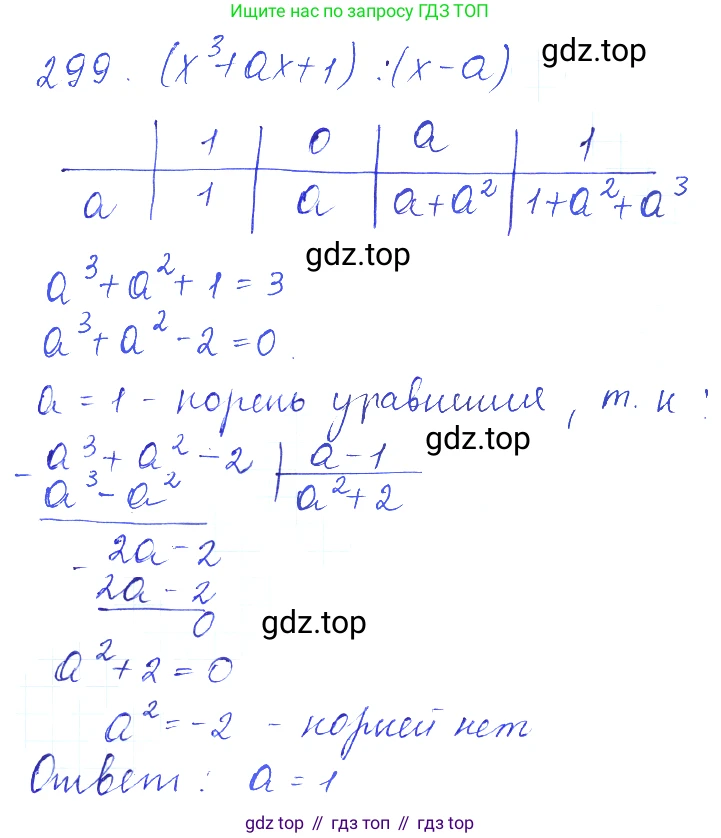 Ищите нас по запросу ГДЗ ТОП
299. (x³+ax+1):(x-a) gdz.top
| 1 | 0 | a | 1
a | 1 | a | a+a² | 1+a²+a³
gdz.top
a³+a²+1=3
a³+a²-2=0
a=1 - корень уравнения, т.к:
-a³+a²-2 | a-1 gdz.top
a³-a² | a²+2
-2a-2
2a-2
0 gdz.top
a²+2=0
a²=-2 - корней нет
Ответ: a=1
gdz top // гдз топ // гдз top